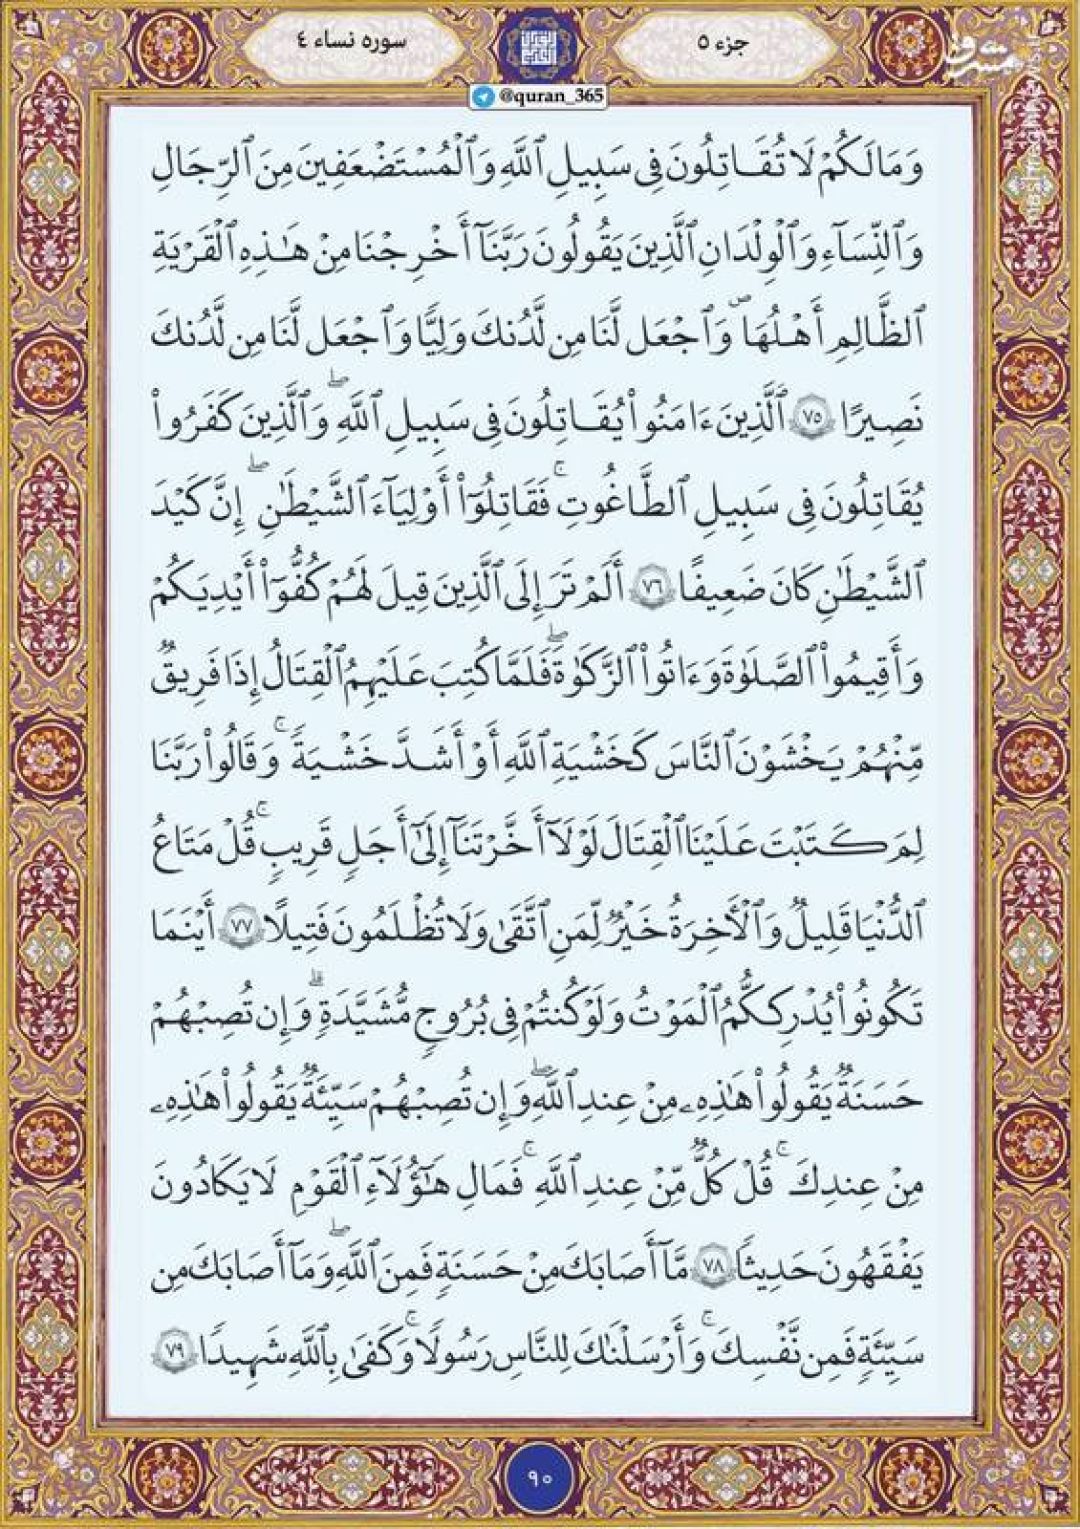 جزء ٥
سوره نساء ٤
مشرق
mashreghnews.ir
@quran_365
وَمَا لَكُمْ لَا تُقَـٰتِلُونَ فِى سَبِيلِ ٱللَّهِ وَٱلْمُسْتَضْعَفِينَ مِنَ ٱلرِّجَالِ
وَٱلنِّسَآءِ وَٱلْوِلْدَانِ ٱلَّذِينَ يَقُولُونَ رَبَّنَآ أَخْرِجْنَا مِنْ هَـٰذِهِ ٱلْقَرْيَةِ
ٱلظَّالِمِ أَهْلُهَا ۖ وَٱجْعَل لَّنَا مِن لَّدُنكَ وَلِيًّا وَٱجْعَل لَّنَا مِن لَّدُنكَ
نَصِيرًا ٧٥ ٱلَّذِينَ ءَامَنُوا۟ يُقَـٰتِلُونَ فِى سَبِيلِ ٱللَّهِ ۖ وَٱلَّذِينَ كَفَرُوا۟
يُقَـٰتِلُونَ فِى سَبِيلِ ٱلطَّـٰغُوتِ ۚ فَقَـٰتِلُوٓا۟ أَوْلِيَآءَ ٱلشَّيْطَـٰنِ ۖ إِنَّ كَيْدَ
ٱلشَّيْطَـٰنِ كَانَ ضَعِيفًا ٧٦ أَلَمْ تَرَ إِلَى ٱلَّذِينَ قِيلَ لَهُمْ كُفُّوٓا۟ أَيْدِيَكُمْ
وَأَقِيمُوا۟ ٱلصَّلَوٰةَ وَءَاتُوا۟ ٱلزَّكَوٰةَ ۖ فَلَمَّا كُتِبَ عَلَيْهِمُ ٱلْقِتَالُ إِذَا فَرِيقٌ
مِّنْهُمْ يَخْشَوْنَ ٱلنَّاسَ كَخَشْيَةِ ٱللَّهِ أَوْ أَشَدَّ خَشْيَةً ۚ وَقَالُوا۟ رَبَّنَا
لِمَ كَتَبْتَ عَلَيْنَا ٱلْقِتَالَ لَوْلَآ أَخَّرْتَنَآ إِلَىٰٓ أَجَلٍ قَرِيبٍ ۚ قُلْ مَتَـٰعُ
ٱلدُّنْيَا قَلِيلٌ وَٱلْأَخِرَةُ خَيْرٌ لِّمَنِ ٱتَّقَىٰ وَلَا تُظْلَمُونَ فَتِيلًا ٧٧ أَيْنَمَا
تَكُونُوا۟ يُدْرِككُّمُ ٱلْمَوْتُ وَلَوْ كُنتُمْ فِى بُرُوجٍ مُّشَيَّدَةٍ ۗ وَإِن تُصِبْهُمْ
حَسَنَةٌ يَقُولُوا۟ هَـٰذِهِۦ مِنْ عِندِ ٱللَّهِ ۖ وَإِن تُصِبْهُمْ سَيِّئَةٌ يَقُولُوا۟ هَـٰذِهِۦ
مِنْ عِندِكَ ۚ قُلْ كُلٌّ مِّنْ عِندِ ٱللَّهِ ۚ فَمَالِ هَـٰٓؤُلَآءِ ٱلْقَوْمِ لَا يَكَادُونَ
يَفْقَهُونَ حَدِيثًا ٧٨ مَّآ أَصَابَكَ مِنْ حَسَنَةٍ فَمِنَ ٱللَّهِ ۖ وَمَآ أَصَابَكَ مِن
سَيِّئَةٍ فَمِن نَّفْسِكَ ۚ وَأَرْسَلْنَـٰكَ لِلنَّاسِ رَسُولًا ۚ وَكَفَىٰ بِٱللَّهِ شَهِيدًا ٧٩
٩٠